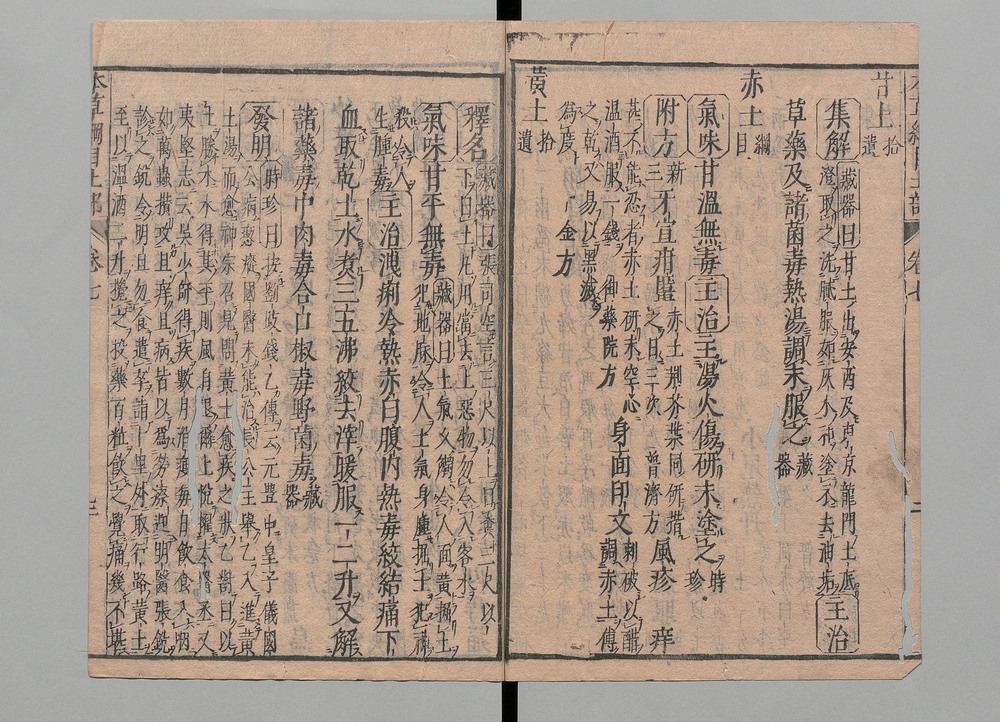 本草綱目土部 卷七 二
甘土 拾遺
集解 藏器曰甘土出安西及東京龍門土底
澄取之洗膩服如灰水和塗衣去油垢 主治
草藥及諸菌毒熱湯調末服之 藏器
赤土 綱目
氣味 甘溫無毒 主治 主湯火傷研末塗之 時珍
附方 新三 牙宣疳䘌 赤土荊芥葉同研揩之日三次 普濟方 風疹 痒
甚不能忍者赤土研末空心溫酒服一錢 御藥院方 身面印文 刺破以醋調赤土傅
之乾又易以黑滅為度 金方
黃土 拾遺
釋名 藏器曰張司空言三尺以上曰糞三尺以
下曰土凡用當去上惡物勿令入客水
氣味 甘平無毒 藏器曰土氣久觸令人面黃掘土犯地脉令人上氣身腫掘土犯神
殺令人生腫毒 主治 洩痢冷熱赤白腹內熱毒絞結痛下
血取乾土水煮三五沸絞去滓暖服一二升又解
諸藥毒中肉毒合口椒毒野菌毒 藏器
發明 時珍曰按劉跂錢乙傳云元豐中皇子儀國
公病瘛瘲國醫未能治長公主舉乙入進黃
土湯而愈神宗召見問黃土愈疾之狀乙對曰以
土勝水水得其平則風自退爾上悅擢太醫丞又
夷堅志云吳少師得疾數月消瘦每日飲食入咽
如萬蟲攢攻且痒且痛皆以為勞瘵迎明醫張銳
診之銳令明旦勿食遣卒詣十里外取行路黃土
至以溫酒二升攪之投藥百粒飲之覺痛幾不堪
本草綱目土部 卷七 三